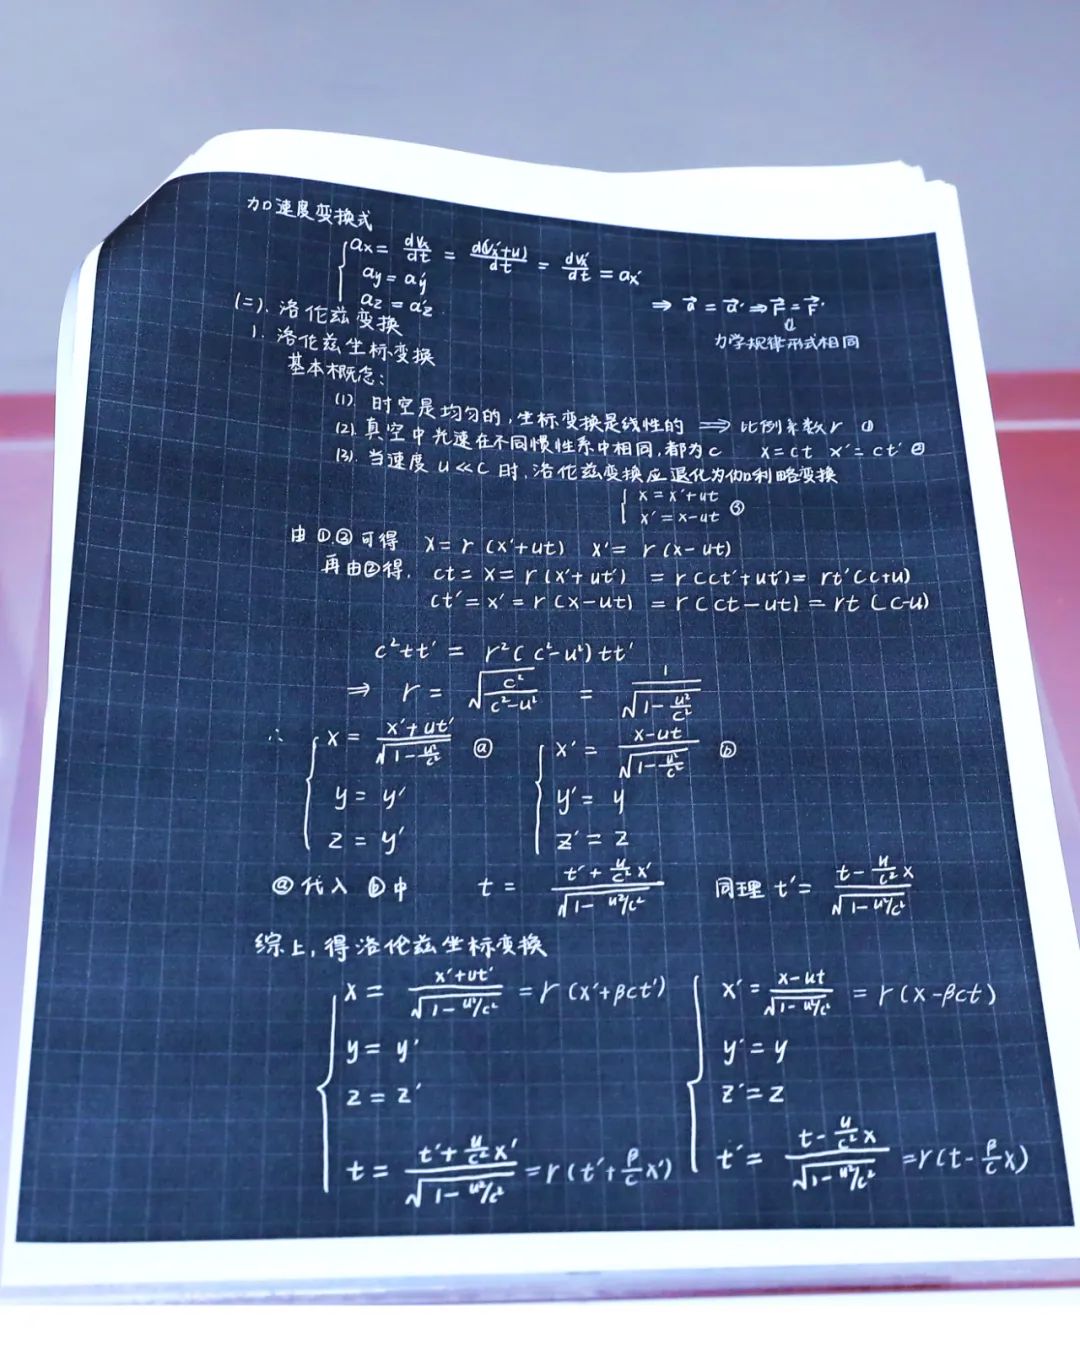 加速度变换式
ax = dvx/dt = d(vx'+u)/dt = dvx'/dt = ax'
ay = ay'
az = a'z
⇒ a⃗ = a⃗' ⇒ F⃗ = F⃗'
⇓
力学规律形式相同
(二). 洛伦兹变换
1. 洛伦兹坐标变换
基本概念:
(1) 时空是均匀的,坐标变换是线性的 ⇒ 比例系数 r ①
(2). 真空中光速在不同惯性系中相同,都为 c x = ct x' = ct' ②
(3). 当速度 u ≪ c 时,洛伦兹变换应退化为伽利略变换
{ x = x'+ut
x' = x-ut ③
由①③可得 x = r (x'+ut) x' = r (x-ut)
再由②得, ct = x = r (x'+ut') = r (ct'+ut') = rt' (c+u)
ct' = x' = r (x-ut) = r (ct-ut) = rt (c-u)
c²tt' = r² (c²-u²) tt'
⇒ r = √(c²/(c²-u²)) = 1/√(1-u²/c²)
∴ { x = (x'+ut')/√(1-u²/c²) ⓐ { x' = (x-ut)/√(1-u²/c²) ⓑ
y = y' y' = y
z = y' z' = z
ⓐ代入ⓑ中 t = (t'+(u/c²)x')/√(1-u²/c²) 同理 t' = (t-(u/c²)x)/√(1-u²/c²)
综上,得洛伦兹坐标变换
{ x = (x'+ut')/√(1-u²/c²) = r (x'+βct') { x' = (x-ut)/√(1-u²/c²) = r (x-βct)
y = y' y' = y
z = z' z' = z
t = (t'+(u/c²)x')/√(1-u²/c²) = r (t'+(β/c)x') t' = (t-(u/c²)x)/√(1-u²/c²) = r (t-(β/c)x)